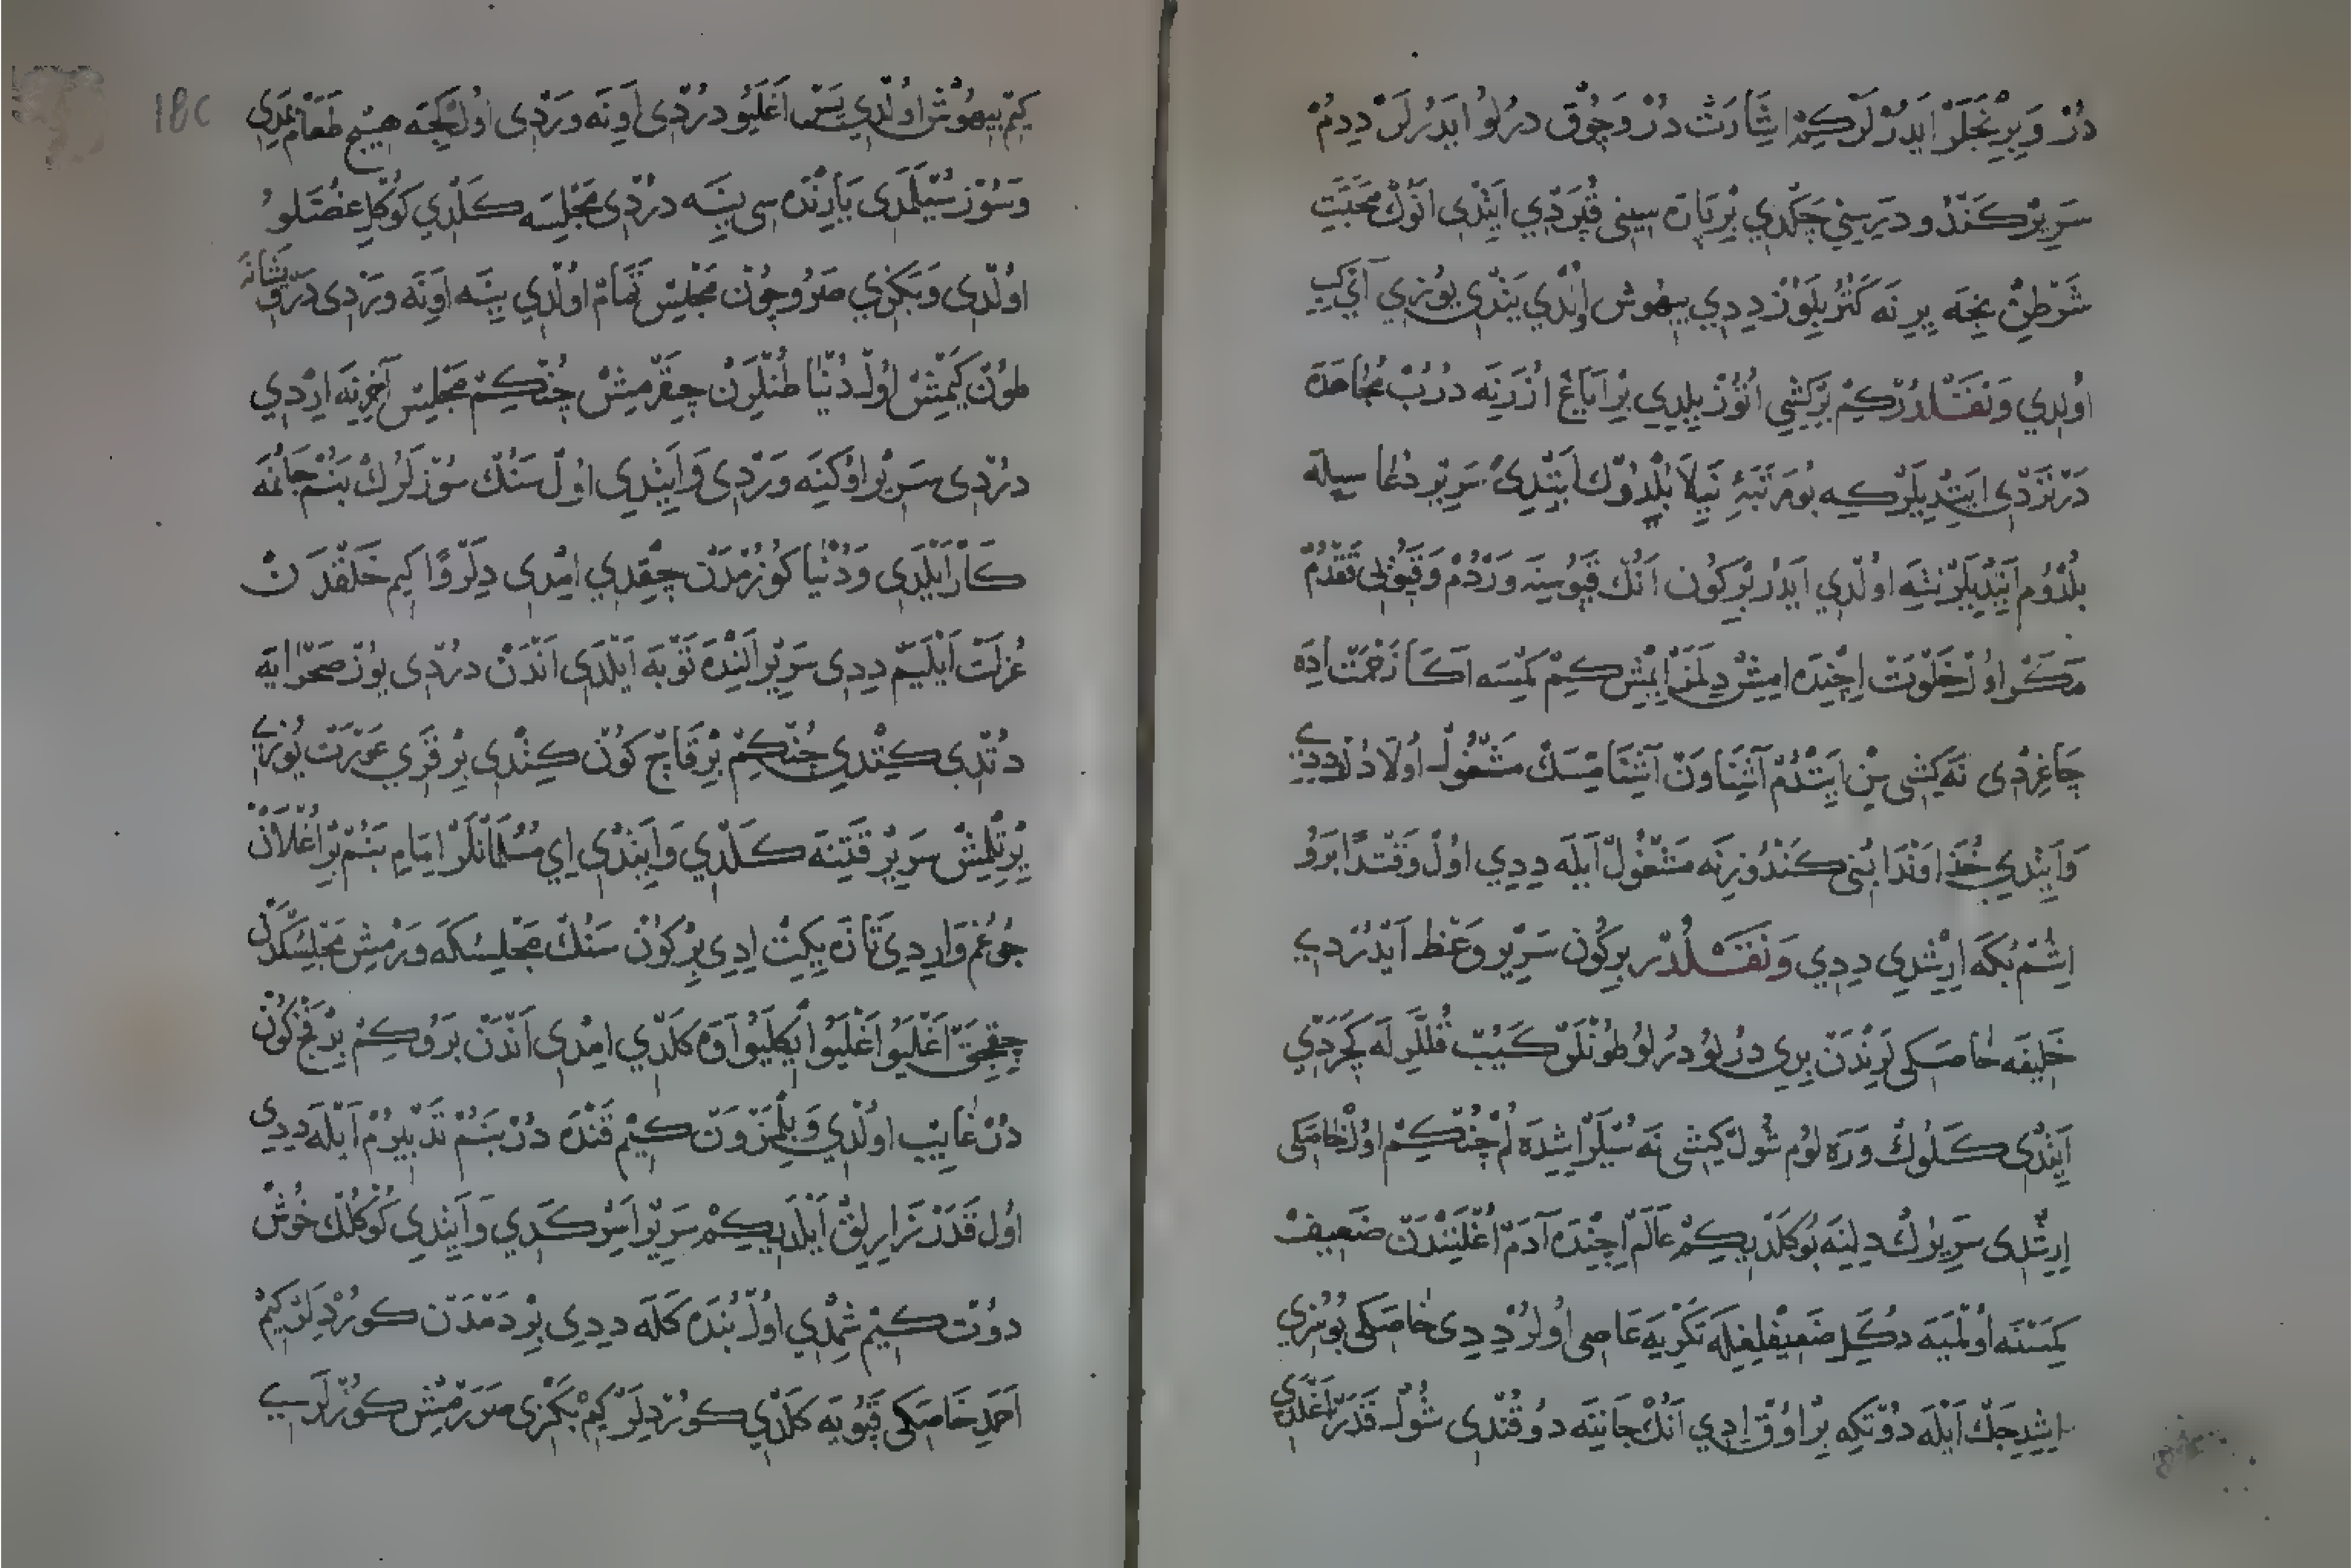 دُرْ وَبِرْنِجَلَرْ اَيدُرْلَرْ كِمْ اِشَارَتْ دُرْ وَچُوقْ دُرْلُو اَيدُرْلَرْ دِدُمْ
سَرِيرْ كَنْدُو دَيرَسِينِي چَكْدِي بِرْ پَارَه سِينِي قُپَرْدِي اَيِتْدِي اَنُوكْ مَحَبَّتِ
شَرْطِنْ نِجَه يِرِنَه كَتُرُبِلَوُزْ دِدِي بِيهُوش اُولْدِي يَنْدِي يُوزِي آيْ كِبِ
اُولْدِي وَنَقَلْدُرْكِمْ بَرْ كِشِي اُتُوزْ يِلْدِي بِرْ اَيَاغْ اُزَرِنَه دُرُبْ مُجَاهَدَه
دَرْنَرْدِي اَيِتْدِيلَرْكِه بُو مَرْتَبَهءِ نَيِلَا بُلْدُوكْ اَيِتْدِي سَرِيرْ دُعَا سِيلَه
بُلْدُومْ اَيِتْدِيلَرْ نِتَه اُولْدِي اَيدُرْ بِرْ كُونْ اَنُكْ قَپُوسِينَه وَرْدُمْ وَقَپُويِ قَقْدُمْ
مَكَرْ اُولْ خَلْوَتْ اِچِنْدَه اِمِشْ دِلَمَزْ اِيمِشْ كِمْ كِمْسَه اَكَا زَحْمَتْ اِدَه
چَاغِرْدِي نَه كِشِي سِنْ اَيِتْدُمْ آشِنَاوَنْ آشِنَامِسَكْ مَشْغُولْ اُولَادُكْ دِدِي
وَاَيِتْدِي خُدَاوَنْدَا بُنِي كَنْدُوزِنَه مَشْغُولْ اَيلَه دِدِي اُولْ وَقْتْدَا بَرُو
اِشُمْ بُكَه اِرِشْدِي دِدِي وَنَقَلْدُرْ بِرْ كُونْ سَرِيرْ وَعْظْ اَيدُرْدِي
خَلِيفَه خَاصَكِي لَرِنْدَنْ بِرِي دُرْلُو دُرْلُو طُونْلَرْ كَيُبْ قُلْلَرْلَه كَچَرْدِي
اَيِتْدِي كَلُوكْ وَرَه لُومْ شُولْ كِشِي نَه سُيلَرْ اِشِدَه لُمْ چُنْكِمْ اُولْ خَاصَكِي
اِرِشْدِي سَرِيرُكْ دِلِنَه بُو كَلْدِيكِمْ عَالَمْ اِچِنْدَه آدَمْ اُغْلَنِنْدَنْ ضَعِيفْ
كِمَسْنَه اُولْمِيَه دُكَلِ ضَعِيفْلِغِلَه تَكْرِيَه عَاصِي اُولُرْ دِدِي خَاصَكِي بُو سُزِي
اِشِدِجَكْ اَيلَه دُوتْكِه بِرْ اُوقْ اِدِي اَنُكْ جَانِنَه دُوقُنْدِي شُولْ قَدَرْ اَغْلَدِي
كِمْ بِيهُوشْ اُولْدِي پَسْ اَغْلَيُو دُرْدِي اَوِنَه وَرْدِي اُولْ كِجَه هِيچْ طَعَامْ يَمَدِي
وَسُوزْ سُيلَمَدِي يَارِنْدَه سِي يِنَه دُرْدِي مَجْلِسَه كَلْدِي كُوكْلِ غُصَّلُو
اُولْدِي وَبَكْزِي صَرُو چُونْ مَجْلِسْ تَمَامْ اُولْدِي يِنَه اَوِنَه وَرْدِي دَرْوِشَانَه
طُونْ كَيمِشْ اُولْ دُنْيَا طُنْلَرِنْ چِقَرْمِشْ چُنْكِمْ مَجْلِسْ آخِرِنَه اِرْدِي
دُرْدِي سَرِيرْ اُوكِنَه وَرْدِي وَاَيِتْدِي اُولْ سَنُكْ سُوزْلَرُكْ بَنُمْ جَانُمَه
كَارْ اَيلَدِي وَدُنْيَا كُوزُمْدَنْ چِقْدِي اِمْدِي دِلَرْوَا كِيمْ خَلْقْدَنْ
عُزْلَتْ اَيلَيَمْ دِدِي سَرِيرْ اَلِنْدَه تَوْبَه اَيلَدِي اَنْدَنْ دُرْدِي يُوزْ صَحْرَايَه
دُتْدِي كِتْدِي چُنْكِمْ بِرْ قَاچْ كُونْ كِتْدِي بِرْ قَرِي عَوْرَتْ يُوزِي
يِرْتِلْمِشْ سَرِيرْ قَتِنَه كَلْدِي وَاَيِتْدِي اِي مُسُلْمَانْلَرْ اِمَامِ بَنُمْ بِرْ اُغْلَانْ
جُوغُمْ وَارِدِي تَازَه يِكِتْ اِدِي بِرْ كُونْ سَنُكْ مَجْلِسِكَه وَرْمِشْ مَجْلِسِكْدَنْ
چِقِجَقْ اَغْلَيُو اَغْلَيُو اِيكِلَيُو اَوَه كَلْدِي اِمْدِي اَنْدَنْ بَرُو كِمْ بِرْ قَچْ كُونْ
دُرْ غَايِبْ اُولْدِي وَبِلْمَزْوَنْ كِيمْ قَنْدَه دُرْ بَنُمْ تَدْبِيرُمْ اَيلَه دِدِي
اُولْ قَدَرْ زَارِيلِقْ اَيلَدِيكِمْ سَرِيرْ اَسِرْكَدِي وَاَيِتْدِي كُوكْلُكْ خُوشْ
دُوتْ كِيمْ شِمْدِي اُولْ بُنْدَه كَلَه دِدِي بِرْ دَمْدَنْ كُورْدِلَرْ كِيمْ
اَحْمَدِ خَاصَكِي قَپُويَه كَلْدِي كُورْدِلَرْ كِمْ بَكْزِي صَرَرْمِشْ كُوزْلَرِي